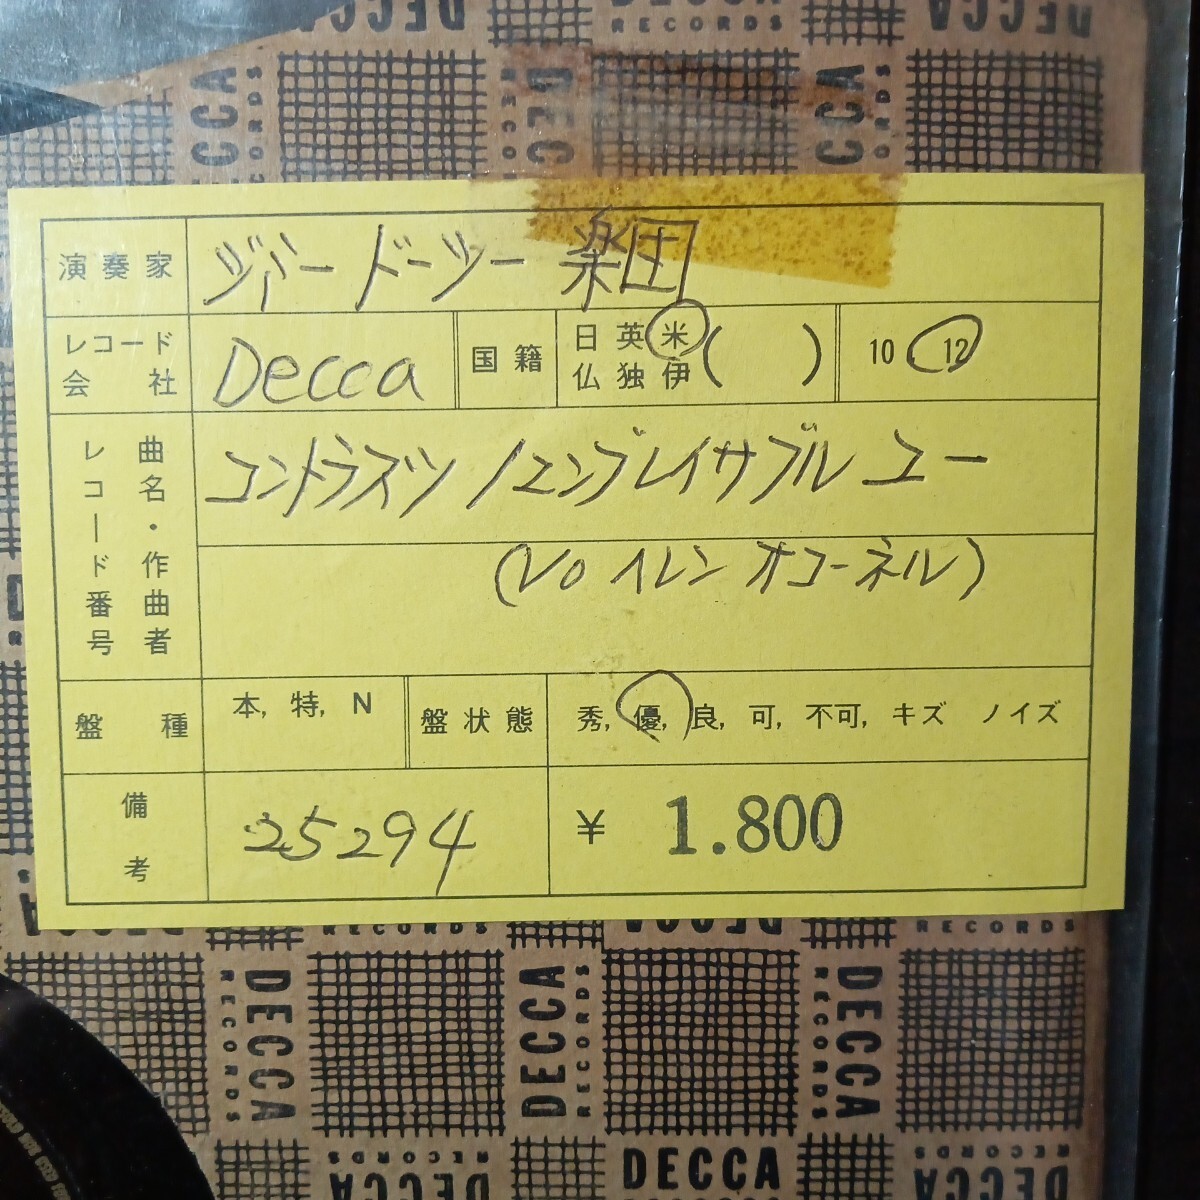 DECCA
RECORDS
演奏家 ジミー ドーシー 楽団
レコード会社 Decca 国籍 日 英 米 ( ) 10 . 12
仏 独 伊
レコード番号 曲名・作曲者 コントラスツ / エンブレイサブル ユー
(Vo ヘレン オコーネル)
盤種 本, 特, N 盤状態 秀, 優, 良, 可, 不可, キズ ノイズ
備考 25294 ¥ 1.800
RECORDS
DECCA
RECORDS
DECCA
RECORDS
DECCA
RECORDS
DECCA
RECORDS
DECCA